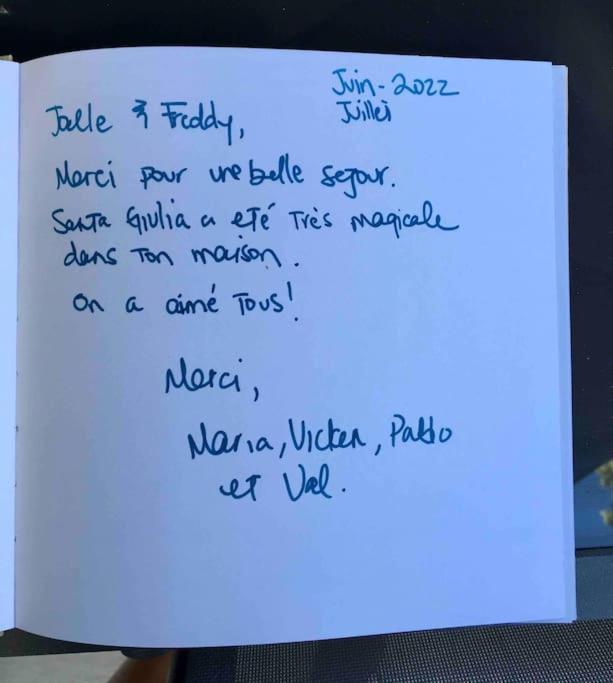 Juin - 2022
Juillet
Joelle & Freddy,
Merci pour une belle sejour.
Santa Giulia a eté très magicale
dans ton maison.
On a aimé tous!
Merci,
Maria, Vicken, Pablo
et Val.